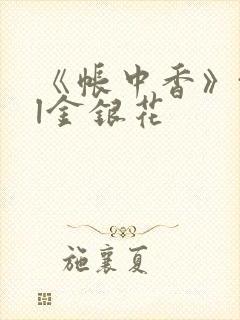 《帐中香》
|金银花
施襄夏